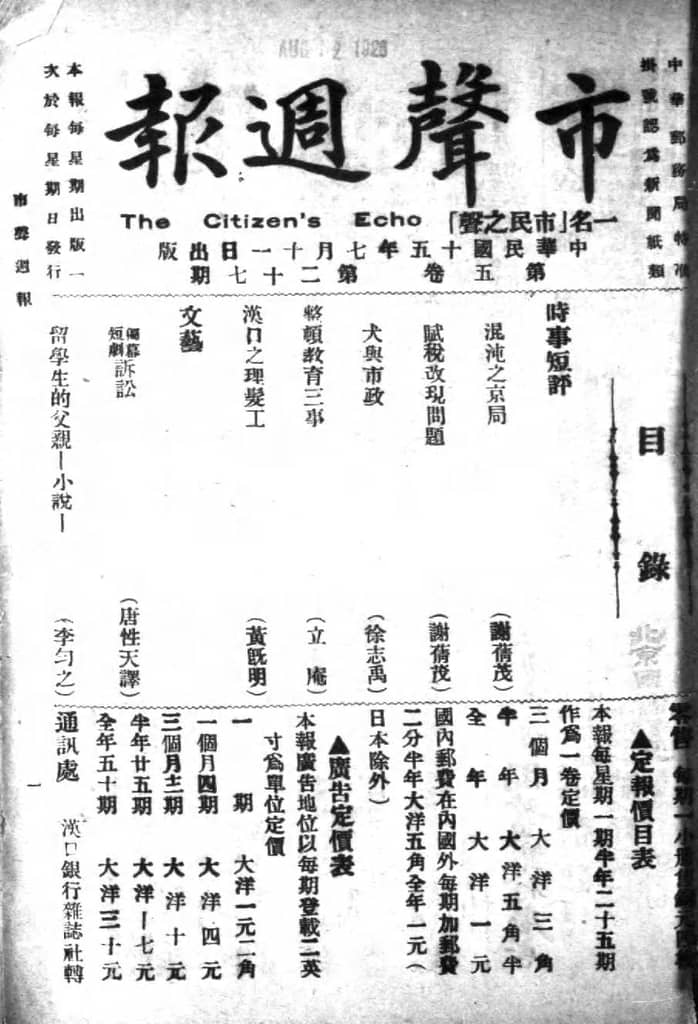 AUG 12 1926
中華郵務局特准
掛號認爲新聞紙類
市聲週報
本報每星期出版一
次於每星期日發行
The Citizen's Echo
一名「市民之聲」
中華民國十五年七月十一日出版
第五卷 第二十七期
市聲週報
目錄
時事短評
混沌之京局 (謝蒨茂)
賦稅改現問題 (謝蒨茂)
犬與市政 (徐志禹)
整頓教育三事 (立庵)
漢口之理髮工 (黃旣明)
文藝
獨幕短劇 訴訟 (唐性天譯)
留學生的父親—小說— (李勻之)
北京
零售 每期一小
▲定報價目表
本報每星期一期半年二十五期
作爲一卷定價
三個月 大洋三角
半年 大洋五角半
全年 大洋一元
國內郵費在內國外每期加郵費
二分半年大洋五角全年一元(
日本除外)
▲廣告定價表
本報廣告地位以每期登載二英
寸爲單位定價
一期 大洋一元二角
一個月四期 大洋四元
三個月十二期 大洋十元
半年廿五期 大洋十七元
全年五十期 大洋三十元
通訊處 漢口銀行雜誌社轉
一